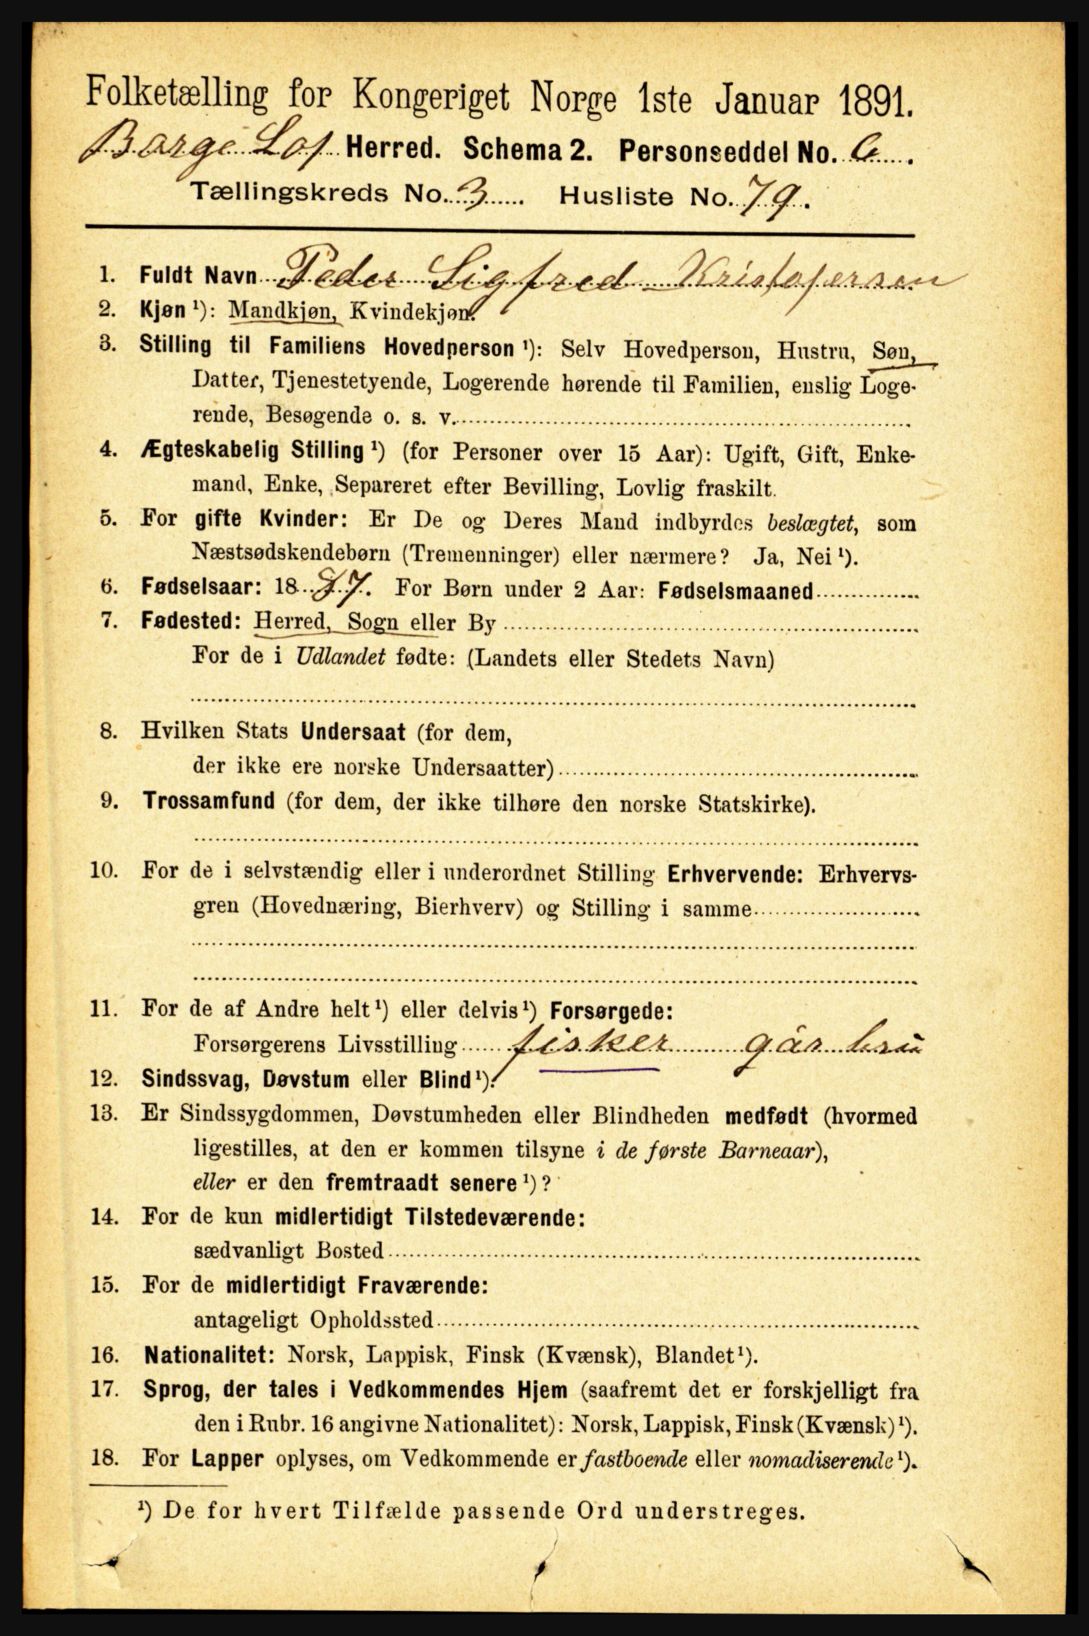 Folketælling for Kongeriget Norge 1ste Januar 1891.
Borge Lof Herred. Schema 2. Personseddel No. 6.
Tællingskreds No. 3. Husliste No. 79.
1. Fuldt Navn Peder Sigfred Kristofersen
2. Kjøn ¹): Mandkjøn, Kvindekjøn.
3. Stilling til Familiens Hovedperson ¹): Selv Hovedperson, Hustru, Søn,
Datter, Tjenestetyende, Logerende hørende til Familien, enslig Loge-
rende, Besøgende o. s. v.
4. Ægteskabelig Stilling ¹) (for Personer over 15 Aar): Ugift, Gift, Enke-
mand, Enke, Separeret efter Bevilling, Lovlig fraskilt.
5. For gifte Kvinder: Er De og Deres Mand indbyrdes beslægtet, som
Næstsødskendebørn (Tremenninger) eller nærmere? Ja, Nei ¹).
6. Fødselsaar: 18 87. For Børn under 2 Aar: Fødselsmaaned
7. Fødested: Herred, Sogn eller By
For de i Udlandet fødte: (Landets eller Stedets Navn)
8. Hvilken Stats Undersaat (for dem,
der ikke ere norske Undersaatter)
9. Trossamfund (for dem, der ikke tilhøre den norske Statskirke).
10. For de i selvstændig eller i underordnet Stilling Erhvervende: Erhvervs-
gren (Hovednæring, Bierhverv) og Stilling i samme
11. For de af Andre helt ¹) eller delvis ¹) Forsørgede:
Forsørgerens Livsstilling fisker går bru
12. Sindssvag, Døvstum eller Blind ¹).
13. Er Sindssygdommen, Døvstumheden eller Blindheden medfødt (hvormed
ligestilles, at den er kommen tilsyne i de første Barneaar),
eller er den fremtraadt senere ¹)?
14. For de kun midlertidigt Tilstedeværende:
sædvanligt Bosted
15. For de midlertidigt Fraværende:
antageligt Opholdssted
16. Nationalitet: Norsk, Lappisk, Finsk (Kvænsk), Blandet ¹).
17. Sprog, der tales i Vedkommendes Hjem (saafremt det er forskjelligt fra
den i Rubr. 16 angivne Nationalitet): Norsk, Lappisk, Finsk (Kvænsk) ¹).
18. For Lapper oplyses, om Vedkommende er fastboende eller nomadiserende ¹).
¹) De for hvert Tilfælde passende Ord understreges.